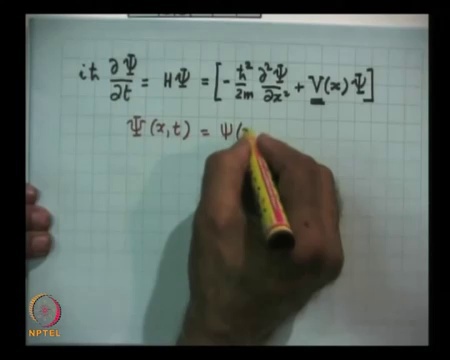 iħ ∂Ψ/∂t = HΨ = [-ħ²/2m ∂²Ψ/∂x² + V(x)Ψ]
Ψ(x,t) = ψ(
NPTEL